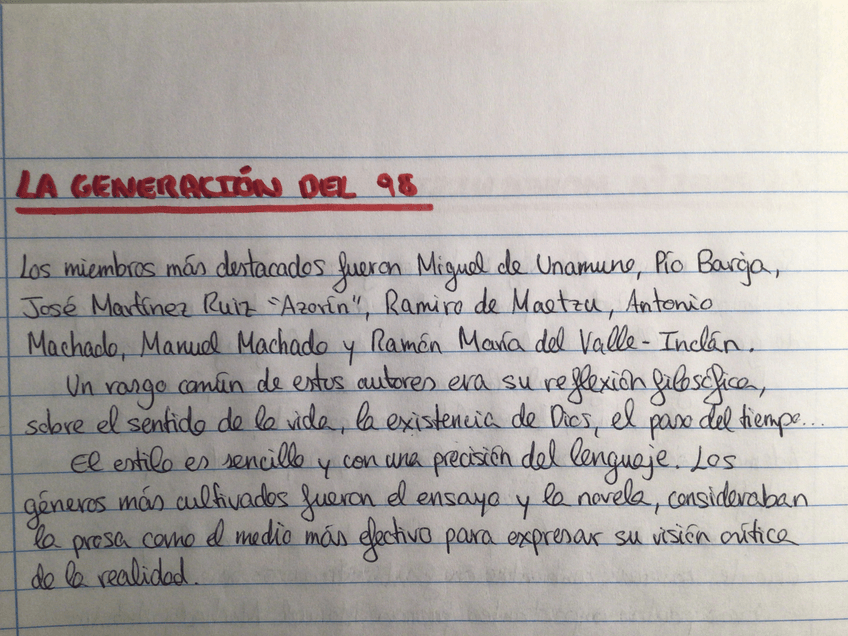 LA GENERACIÓN DEL 98
Los miembros más destacados fueron Miguel de Unamuno, Pío Baroja,
José Martínez Ruiz "Azorín", Ramiro de Maetzu, Antonio
Machado, Manuel Machado y Ramón María del Valle-Inclán.
Un rasgo común de estos autores era su reflexión filosófica,
sobre el sentido de la vida, la existencia de Dios, el paso del tiempo...
El estilo es sencillo y con una precisión del lenguaje. Los
géneros más cultivados fueron el ensayo y la novela, consideraban
la prosa como el medio más efectivo para expresar su visión crítica
de la realidad.